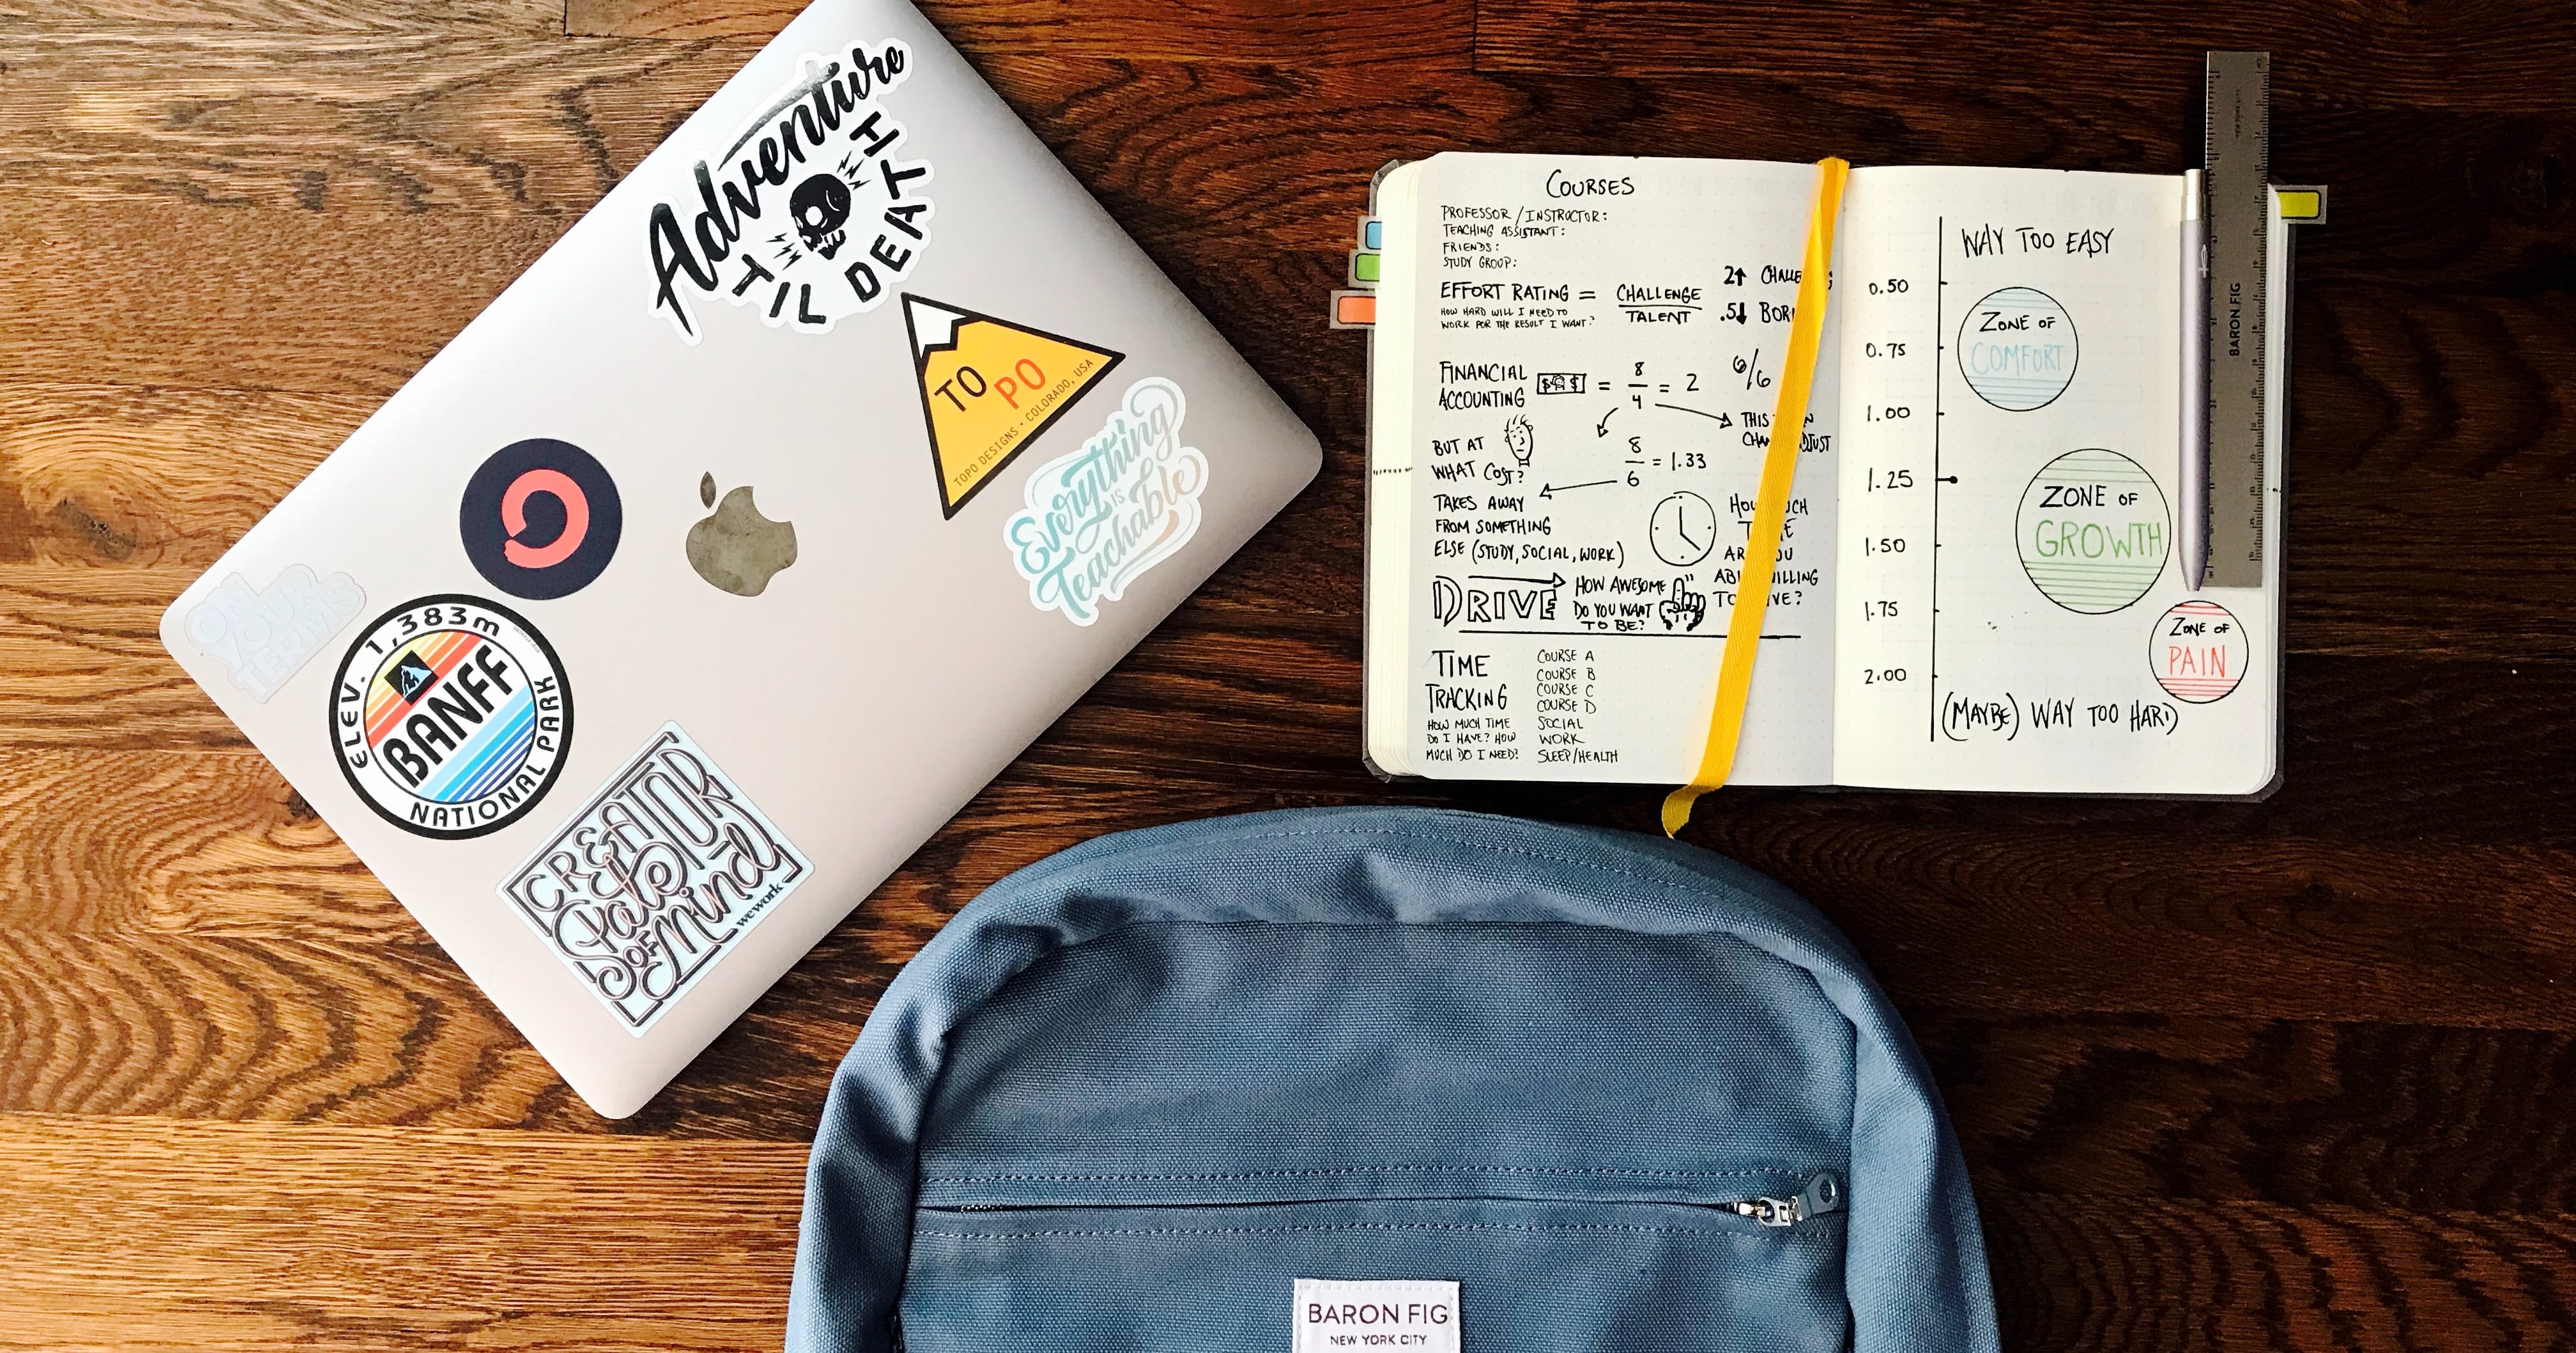 Adventure
'TIL DEATH
TOPO
TOPO DESIGNS • COLORADO, USA
Everything
IS
Teachable
ON
YOUR
TERMS
ELEV. 1,383m
BANFF
NATIONAL PARK
CREATOR
State
OF
Mind
wework
COURSES
PROFESSOR / INSTRUCTOR:
TEACHING ASSISTANT:
FRIENDS:
STUDY GROUP:
EFFORT RATING = CHALLENGE
TALENT
HOW HARD WILL I NEED TO
WORK FOR THE RESULT I WANT?
2↑
.5↓
FINANCIAL
ACCOUNTING
$ $ = 8/4 = 2
6/6
THIS
8/6 = 1.33
BUT AT
WHAT COST?
TAKES AWAY
FROM SOMETHING
ELSE (STUDY, SOCIAL, WORK)
DRIVE
HOW AWESOME
DO YOU WANT
TO BE?
TIME
TRACKING
HOW MUCH TIME
DO I HAVE? HOW
MUCH DO I NEED?
COURSE A
COURSE B
COURSE C
COURSE D
SOCIAL
WORK
SLEEP/HEALTH
WAY TOO EASY
0.50
0.75
1.00
1.25
1.50
1.75
2.00
ZONE OF
COMFORT
ZONE OF
GROWTH
ZONE OF
PAIN
(MAYBE) WAY TOO HARD
BARON FIG
BARON FIG
NEW YORK CITY